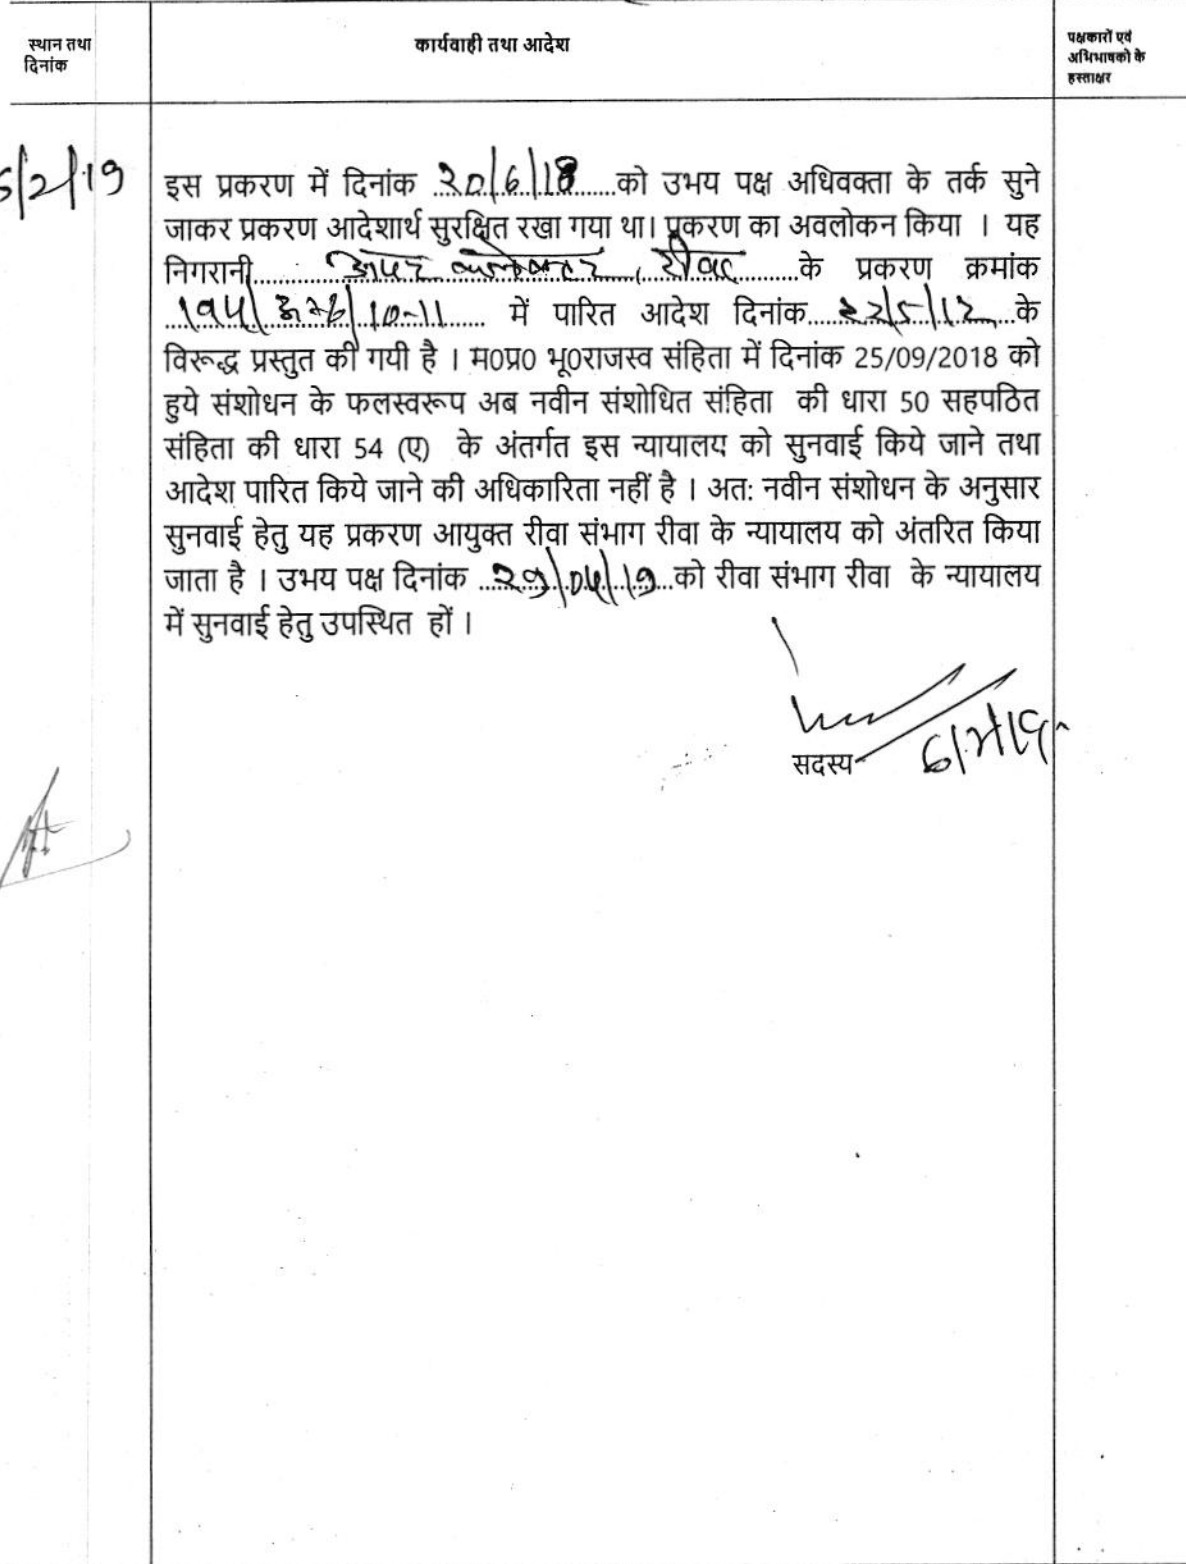 स्थान तथा
दिनांक
कार्यवाही तथा आदेश
पक्षकारों एवं
अभिभाषको के
हस्ताक्षर
/2/19
इस प्रकरण में दिनांक 20/6/18 को उभय पक्ष अधिवक्ता के तर्क सुने
जाकर प्रकरण आदेशार्थ सुरक्षित रखा गया था। प्रकरण का अवलोकन किया । यह
निगरानी अपर कलेक्टर, रीवा के प्रकरण क्रमांक
में पारित आदेश दिनांक 22/5/12 के
विरूद्ध प्रस्तुत की गयी है । म0प्र0 भू0राजस्व संहिता में दिनांक 25/09/2018 को
हुये संशोधन के फलस्वरूप अब नवीन संशोधित संहिता की धारा 50 सहपठित
संहिता की धारा 54 (ए) के अंतर्गत इस न्यायालय को सुनवाई किये जाने तथा
आदेश पारित किये जाने की अधिकारिता नहीं है । अत: नवीन संशोधन के अनुसार
सुनवाई हेतु यह प्रकरण आयुक्त रीवा संभाग रीवा के न्यायालय को अंतरित किया
जाता है । उभय पक्ष दिनांक को रीवा संभाग रीवा के न्यायालय
में सुनवाई हेतु उपस्थित हों ।
सदस्य